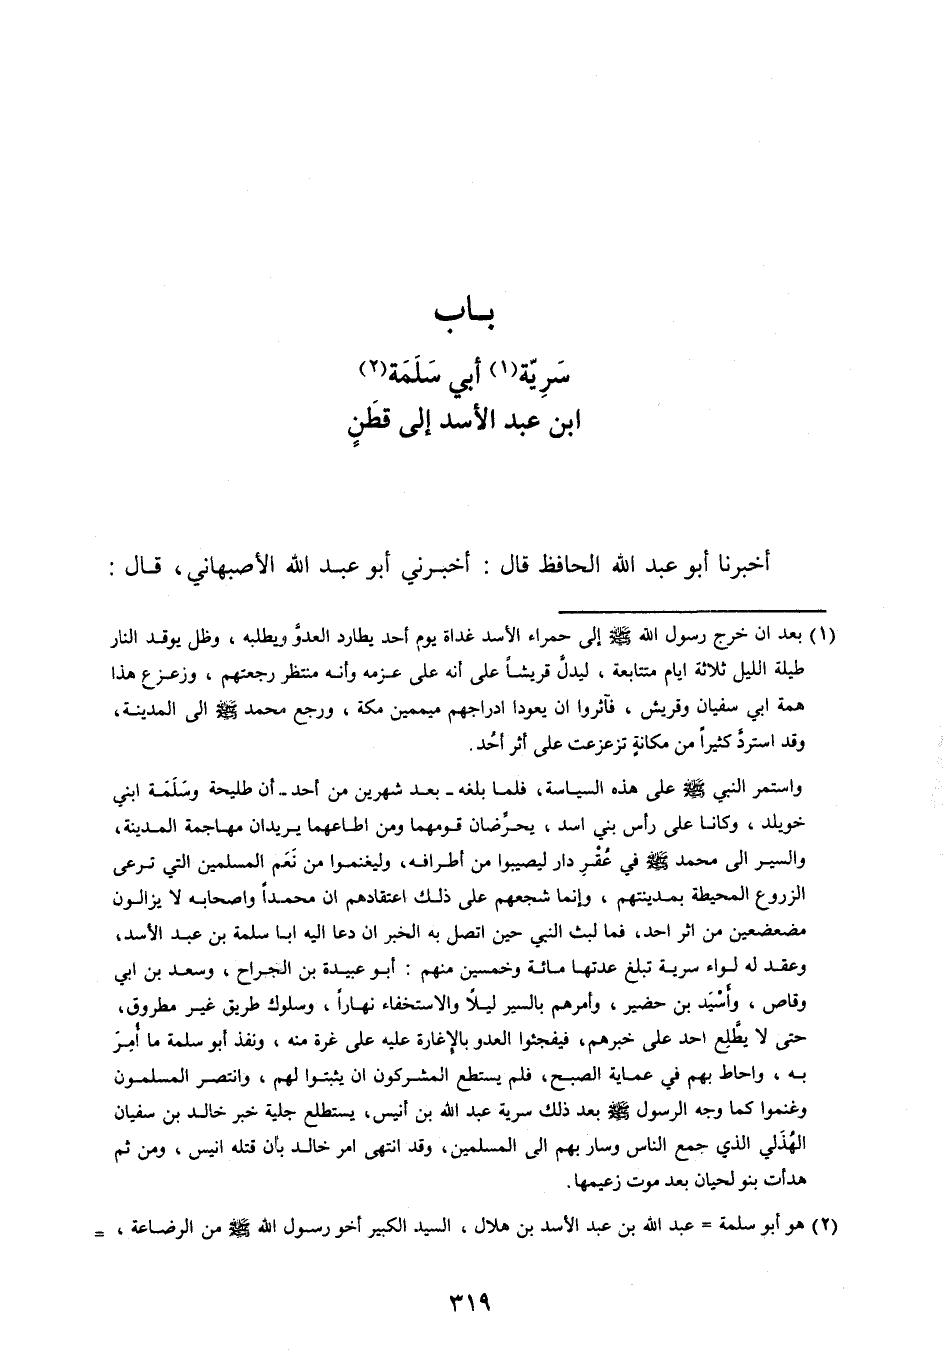 بـاب
سَرِيّة(١) أبي سَلَمَة(٢)
ابن عبد الأسد إلى قَطَنٍ
أخبرنا أبو عبد الله الحافظ قال : أخبـرني أبو عبـد الله الأصبهاني، قـال :
(١) بعد ان خرج رسول الله ﷺ إلى حمراء الأسد غداة يوم أحد يطارد العدوَّ ويطلبه ، وظل يوقـد النار
طيلة الليل ثلاثة ايام متتابعة ، ليدلَّ قريشـاً على أنه على عـزمه وأنـه منتظر رجعتهم ، وزعـزع هذا
همة ابي سفيان وقريش ، فآثروا ان يعودا ادراجهم ميممين مكة ، ورجع محمد ﷺ الى المدينـة،
وقد استردَّ كثيراً من مكانةٍ تزعزعت على أثر أحُد.
واستمر النبي ﷺ على هذه السياسة، فلمـا بلغه ـ بعـد شهرين من أحد ـ أن طليحة وسَلَمَـة ابني
خويلد ، وكانـا على رأس بني اسد ، يحرِّضان قـومهما ومن اطـاعهما يـريدان مهـاجمة المـدينة،
والسيـر الى محمد ﷺ في عُقْرِ دار ليصيبوا من أطرافـه، وليغنمـوا من نَعَم المسلمين التي تـرعى
الزروع المحيطة بمـدينتهم ، وإنما شجعهم على ذلـك اعتقادهم ان محمـداً واصحابـه لا يزالـون
مضعضعين من اثر احد، فما لبث النبي حين اتصل به الخبر ان دعا اليه ابـا سلمة بن عبـد الأسد،
وعقـد له لـواء سرية تبلغ عدتهـا مـائـة وخـمسين منهم : أبـو عبيدة بن الجراح ، وسعـد بن ابي
وقاص ، وأُسْيَد بن حضير ، وأمرهم بالسير ليـلًا والاستخفاء نهـاراً ، وسلوك طريق غيـر مطروق،
حتى لا يطَّلِع احد على خبرهم، فيفجئوا العدو بالإغارة عليه على غرة منه ، ونفذ أبو سلمة ما أُمِرَ
بـه ، واحاط بهم في عمـاية الصبـح، فلم يستطع المشركون ان يثبتـوا لهم ، وانتصـر المسلمـون
وغنمـوا كما وجه الرسول ﷺ بعد ذلك سرية عبد الله بن أنيس، يستطلع جلية خبر خالـد بن سفيان
الهُذَلي الذي جمع الناس وسار بهم الى المسلمين، وقد انتهى امر خالـد بأن قتله انيس ، ومن ثم
هدأت بنو لحيان بعد موت زعيمها.
(٢) هو أبو سلمة = عبد الله بن عبد الأسد بن هلال ، السيد الكبير أخو رسول الله ﷺ من الرضـاعة ، =
٣١٩